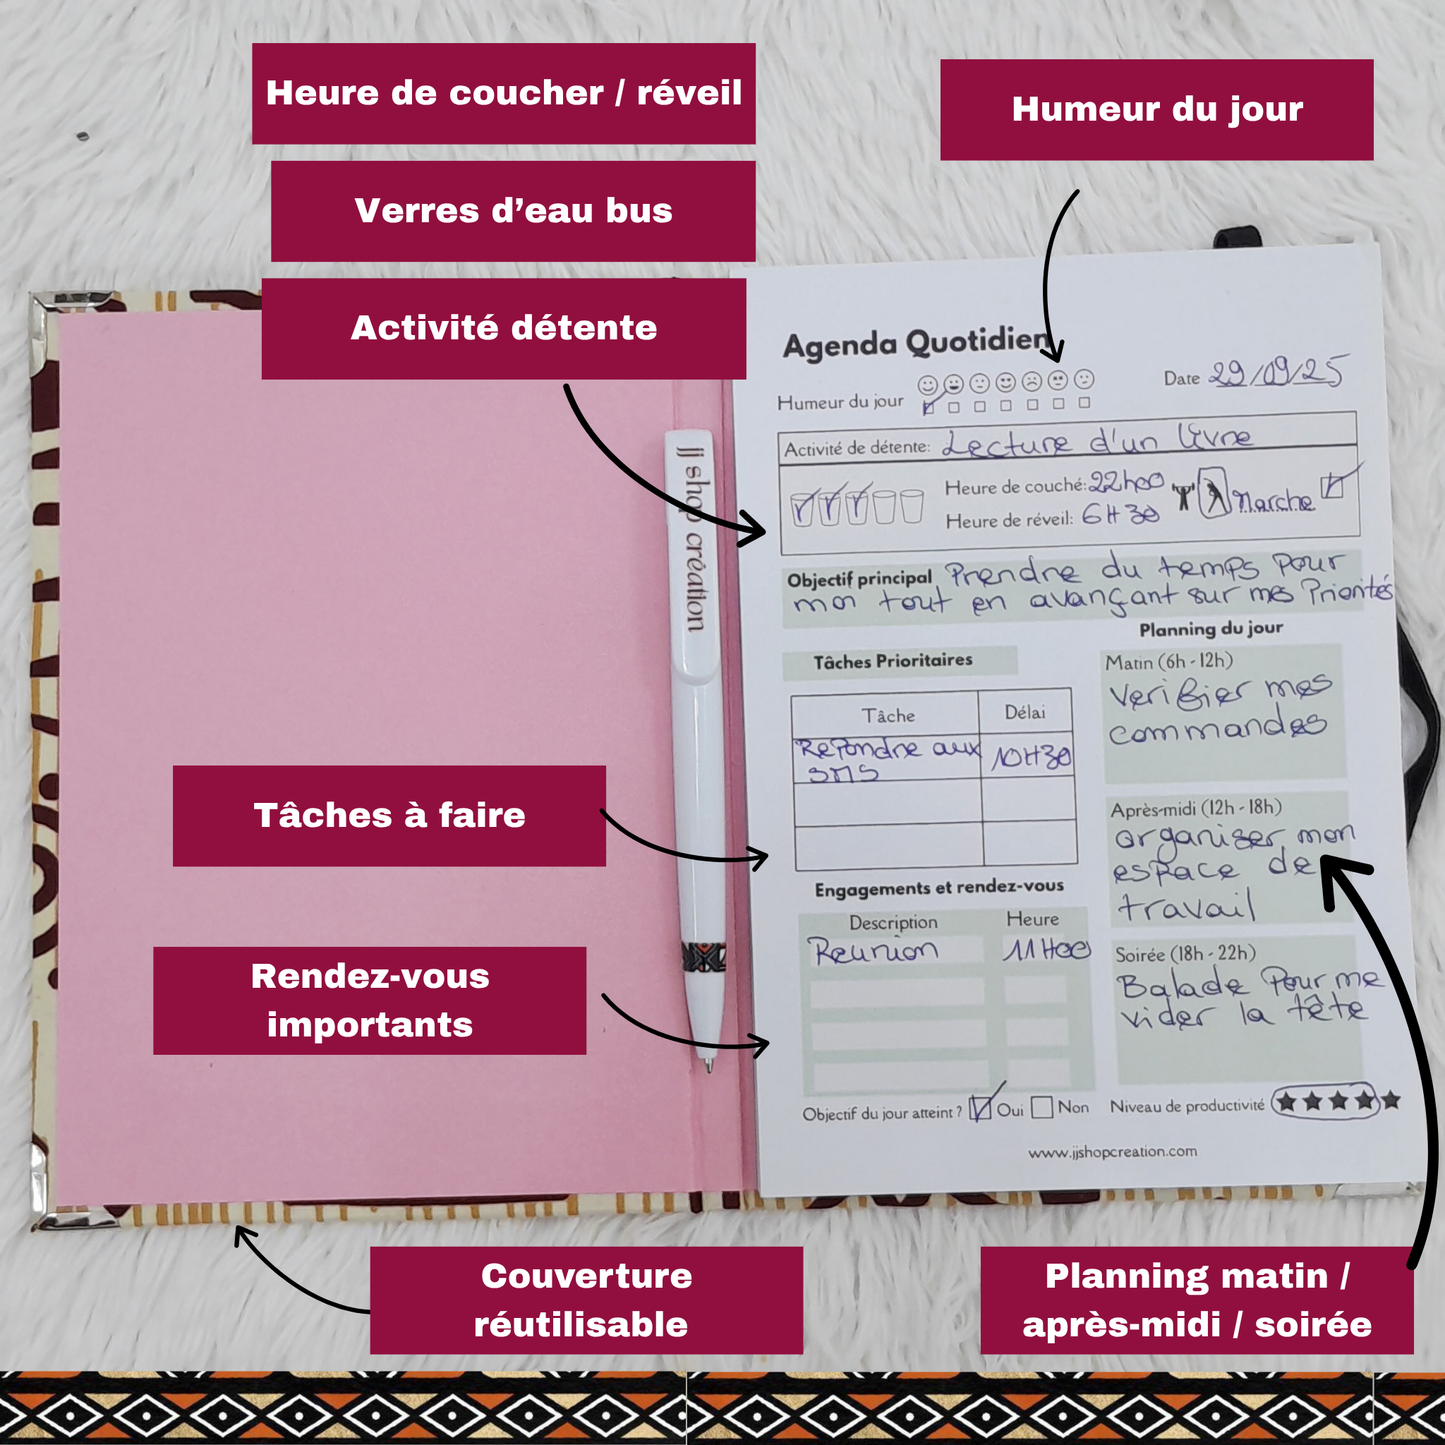 Heure de coucher / réveil
Humeur du jour
Verres d’eau bus
Activité détente
Agenda Quotidien
Humeur du jour
Date 29/09/25
Activité de détente: Lecture d'un livre
Heure de couché: 22h00
Heure de réveil: 6H30
Marche
Objectif principal Prendre du temps pour
moi tout en avançant sur mes Priorités
jj shop création
Tâches Prioritaires
Tâche Délai
Repondre aux 10H30
SMS
Engagements et rendez-vous
Description Heure
Reunion 11H00
Planning du jour
Matin (6h - 12h)
Verifier mes
commandes
Après-midi (12h - 18h)
organiser mon
espace de
travail
Soirée (18h - 22h)
Balade Pour me
vider la tête
Objectif du jour atteint ? Oui Non
Niveau de productivité
www.jjshopcreation.com
Tâches à faire
Rendez-vous
importants
Couverture
réutilisable
Planning matin /
après-midi / soirée